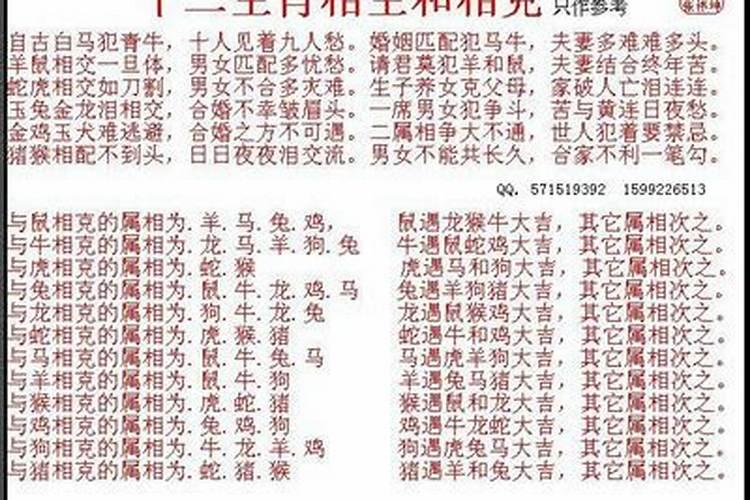 十二生肖相生和相克 只作参考
自古白马犯青牛，十人见着九人愁。婚姻匹配犯马牛，夫妻多难难多头。
羊鼠相交一旦体，男女匹配多忧愁。请君莫犯羊和鼠，夫妻结合终年苦。
蛇虎相交如刀割，男女不合多灾难。生子养女克父母，家破人亡泪连连。
玉兔金龙泪相交，合婚不幸皱眉头。一席男女犯争斗，苦与黄连日夜愁。
金鸡玉犬难逃避，合婚之方不可遇。二属相争大不通，世人犯着要禁忌。
猪猴相配不到头，日日夜夜泪交流。男女不能共长久，合家不利一笔勾。
QQ. 571519392 1599226513
与鼠相克的属相为.羊.马.兔.鸡,
与牛相克的属相为.龙.马.羊.狗.兔
与虎相克的属相为.蛇.猴
与兔相克的属相为.鼠.牛.龙.鸡.马
与龙相克的属相为.狗.牛.龙.兔
与蛇相克的属相为.虎.猴.猪
与马相克的属相为.鼠.牛.兔.马
与羊相克的属相为.鼠.牛.狗
与猴相克的属相为.虎.蛇.猪
与鸡相克的属相为.兔.鸡.狗
与狗相克的属相为.牛.龙.羊.鸡
与猪相克的属相为.蛇.猪.猴
鼠遇龙猴牛大吉，其它属相次之。
牛遇鼠蛇鸡大吉，其它属相次之。
虎遇马和狗大吉，其它属相次之。
兔遇羊狗猪大吉，其它属相次之。
龙遇鼠猴鸡大吉，其它属相次之。
蛇遇牛和鸡大吉，其它属相次之。
马遇虎羊狗大吉，其它属相次之。
羊遇兔马猪大吉，其它属相次之。
猴遇鼠和龙大吉，其它属相次之。
鸡遇牛龙蛇大吉，其它属相次之。
狗遇虎兔马大吉，其它属相次之。
猪遇羊和兔大吉，其它属相次之。